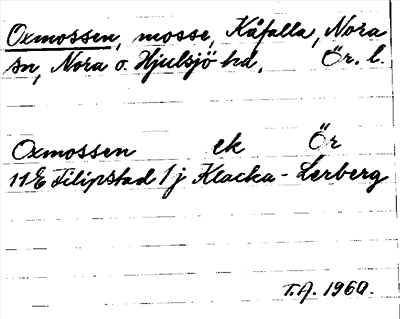 Oxmossen, mosse, Kåfalla, Nora
sn, Nora o. Hjulsjö hd, Ör. l.
Oxmossen ek Ör
11E Filipstad 1j Klacka-Lerberg
T.A. 1960.